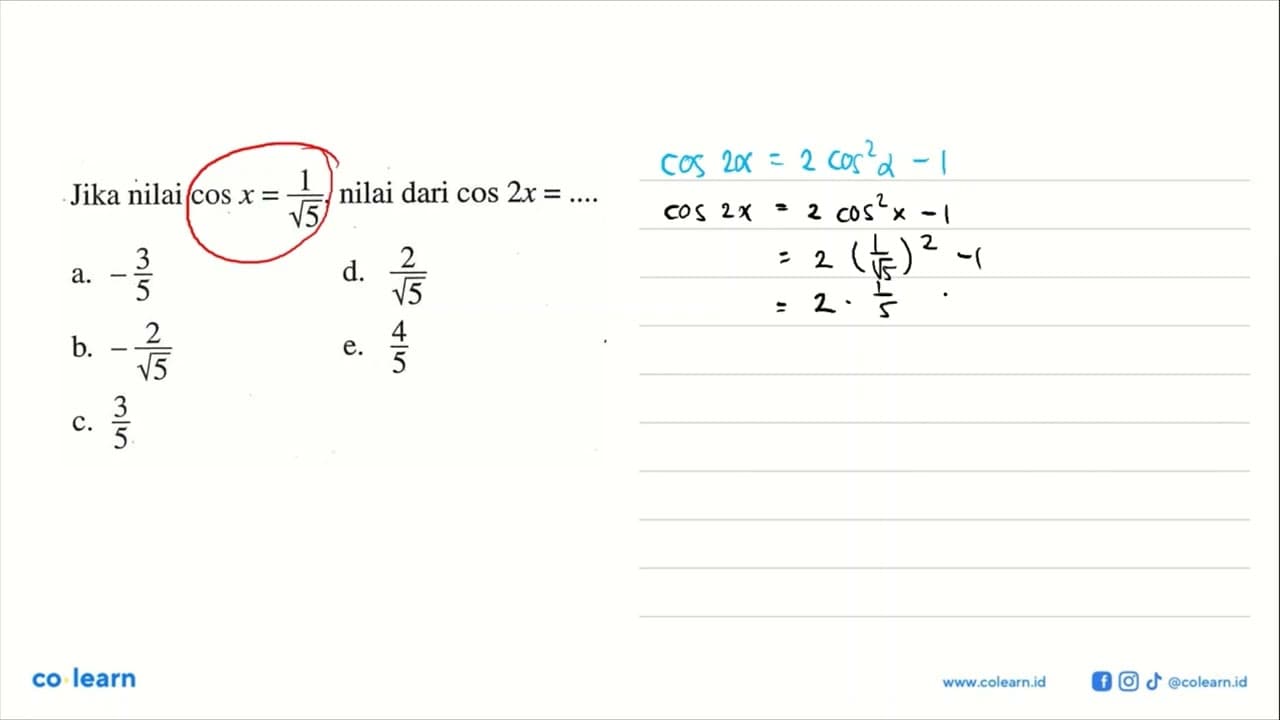 Jika nilai cos x = 1/√5, nilai dari cos 2x = ....
a. −3/5
b. −2/√5
c. 3/5
d. 2/√5
e. 4/5
cos 2α = 2 cos²α − 1
cos 2x = 2 cos²x − 1
= 2 (1/√5)² − 1
= 2 · 1/5
co·learn
www.colearn.id
@colearn.id